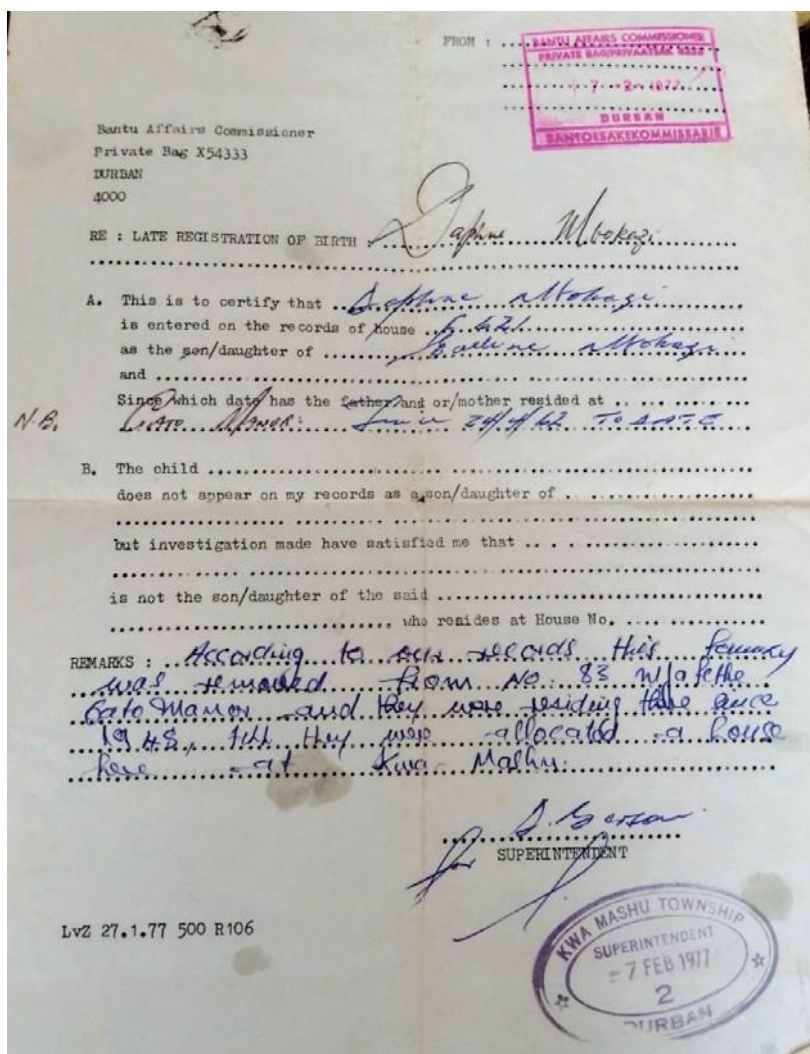 FROM : ........................
BANTU AFFAIRS COMMISSIONER
PRIVATE BAG/PRIVAATSAK
7 -2- 1977
DURBAN
BANTOESAKEKOMMISSARIS
Bantu Affairs Commissioner
Private Bag X54333
DURBAN
4000
RE : LATE REGISTRATION OF BIRTH Daphne Mbokazi
A. This is to certify that Daphne Mbokazi
is entered on the records of house
as the son/daughter of Mbokazi
and ........................
Since which date has the father and or/mother resided at ........
N.B. Cato Manor: Since 24/4/62 TO DATE
B. The child ........................
does not appear on my records as a son/daughter of ........................
but investigation made have satisfied me that ........................
is not the son/daughter of the said ........................
........................ who resides at House No. ........................
REMARKS : According to our records this family
was removed from No. 83
Cato Manor and they were residing there since
1948, till they were allocated a house
here at Kwa Mashu.
for
SUPERINTENDENT
LvZ 27.1.77 500 R106
KWA MASHU TOWNSHIP
SUPERINTENDENT
- 7 FEB 1977
2
DURBAN